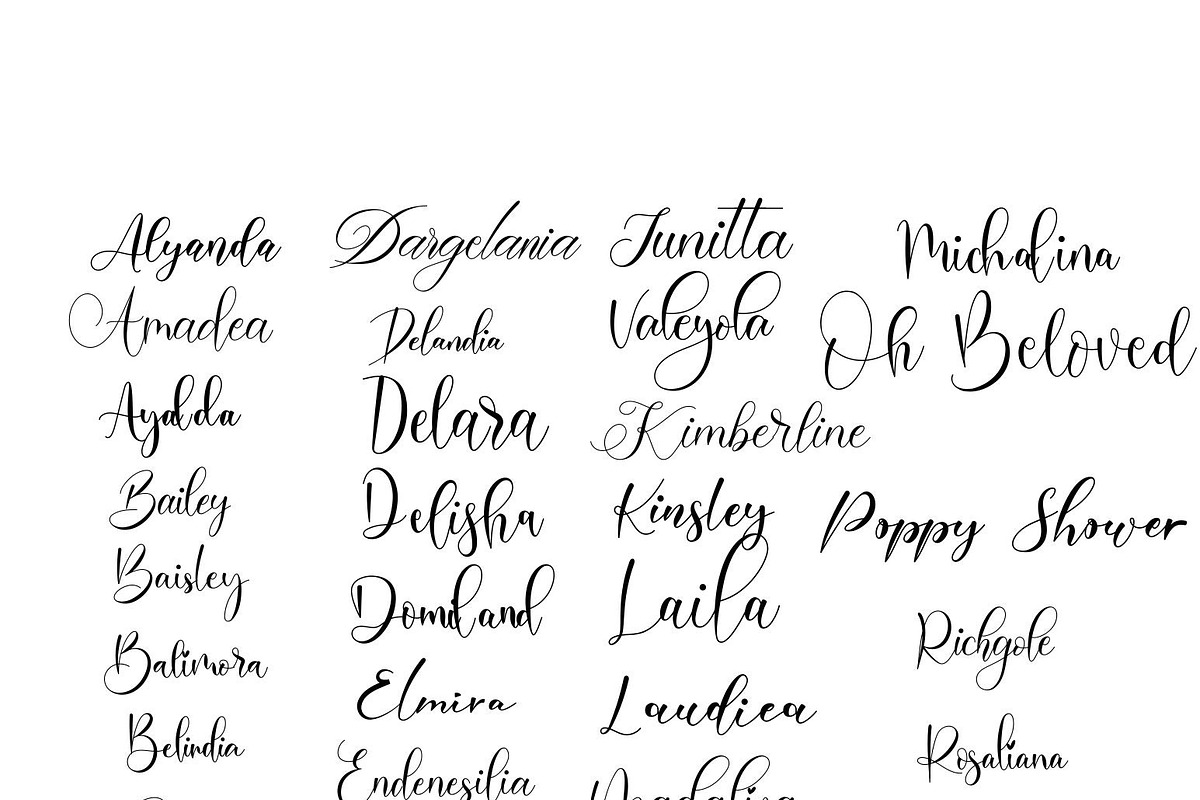 Alyanda
Amadea
Ayalda
Bailey
Baisley
Balimora
Belindia
Dargelania
Delandia
Delara
Delisha
Domiland
Elmira
Endenesilia
Junitta
Valeyola
Kimberline
Kinsley
Laila
Laudica
Michalina
Oh Beloved
Poppy Shower
Richgole
Rosaliana